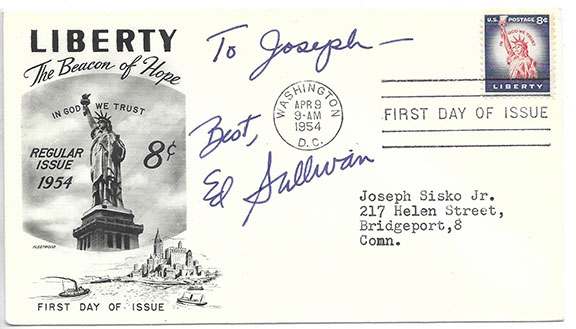 LIBERTY
The Beacon of Hope
IN GOD WE TRUST
REGULAR ISSUE 1954
8¢
FLEETWOOD
FIRST DAY OF ISSUE
To Joseph —
Best,
Ed Sullivan
WASHINGTON
APR 9
9-AM
1954
D.C.
U.S. POSTAGE 8¢
IN GOD WE TRUST
LIBERTY
FIRST DAY OF ISSUE
Joseph Sisko Jr.
217 Helen Street,
Bridgeport,8
Conn.